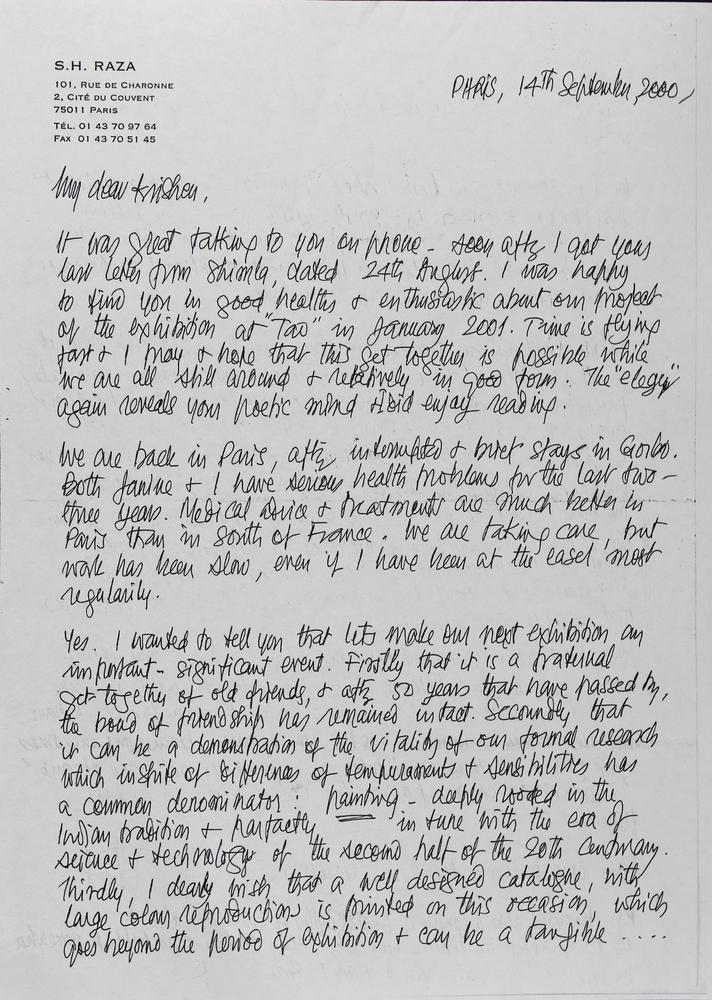 S.H. RAZA
101, RUE DE CHARONNE
2, CITÉ DU COUVENT
75011 PARIS
TÉL. 01 43 70 97 64
FAX 01 43 70 51 45
PARIS, 14th September, 2000,
My dear Krishen,
It was great talking to you on phone - soon after I got your
last letter from Shimla, dated 24th August. I was happy
to find you in good health & enthusiastic about our project
of the exhibition at "Tao" in January 2001. Time is flying
fast & I pray & hope that this get together is possible while
we are all still around & relatively in good form. The "elegy"
again reveals your poetic mind & I did enjoy reading.
We are back in Paris, after interrupted & brief stays in Gorbio.
Both Janine & I have serious health problems for the last two-
three years. Medical advice & treatments are much better in
Paris than in South of France. We are taking care, but
work has been slow, even if I have been at the easel most
regularily.
Yes. I wanted to tell you that lets make our next exhibition an
important - significant event. Firstly that it is a fraternal
get-together of old friends, & after 50 years that have passed by,
the bond of friendship has remained intact. Secoundly that
it can be a demonstration of the vitality of our formal research
which inspite of differences of temperaments & sensibilities has
a common denominator: painting - deeply rooted in the
Indian tradition & perfectly in tune with the era of
science & technology of the second half of the 20th century.
Thirdly, I dearly wish that a well designed catalogue, with
large colour reproductions is printed on this occasion, which
goes beyond the period of exhibition & can be a tangible ....